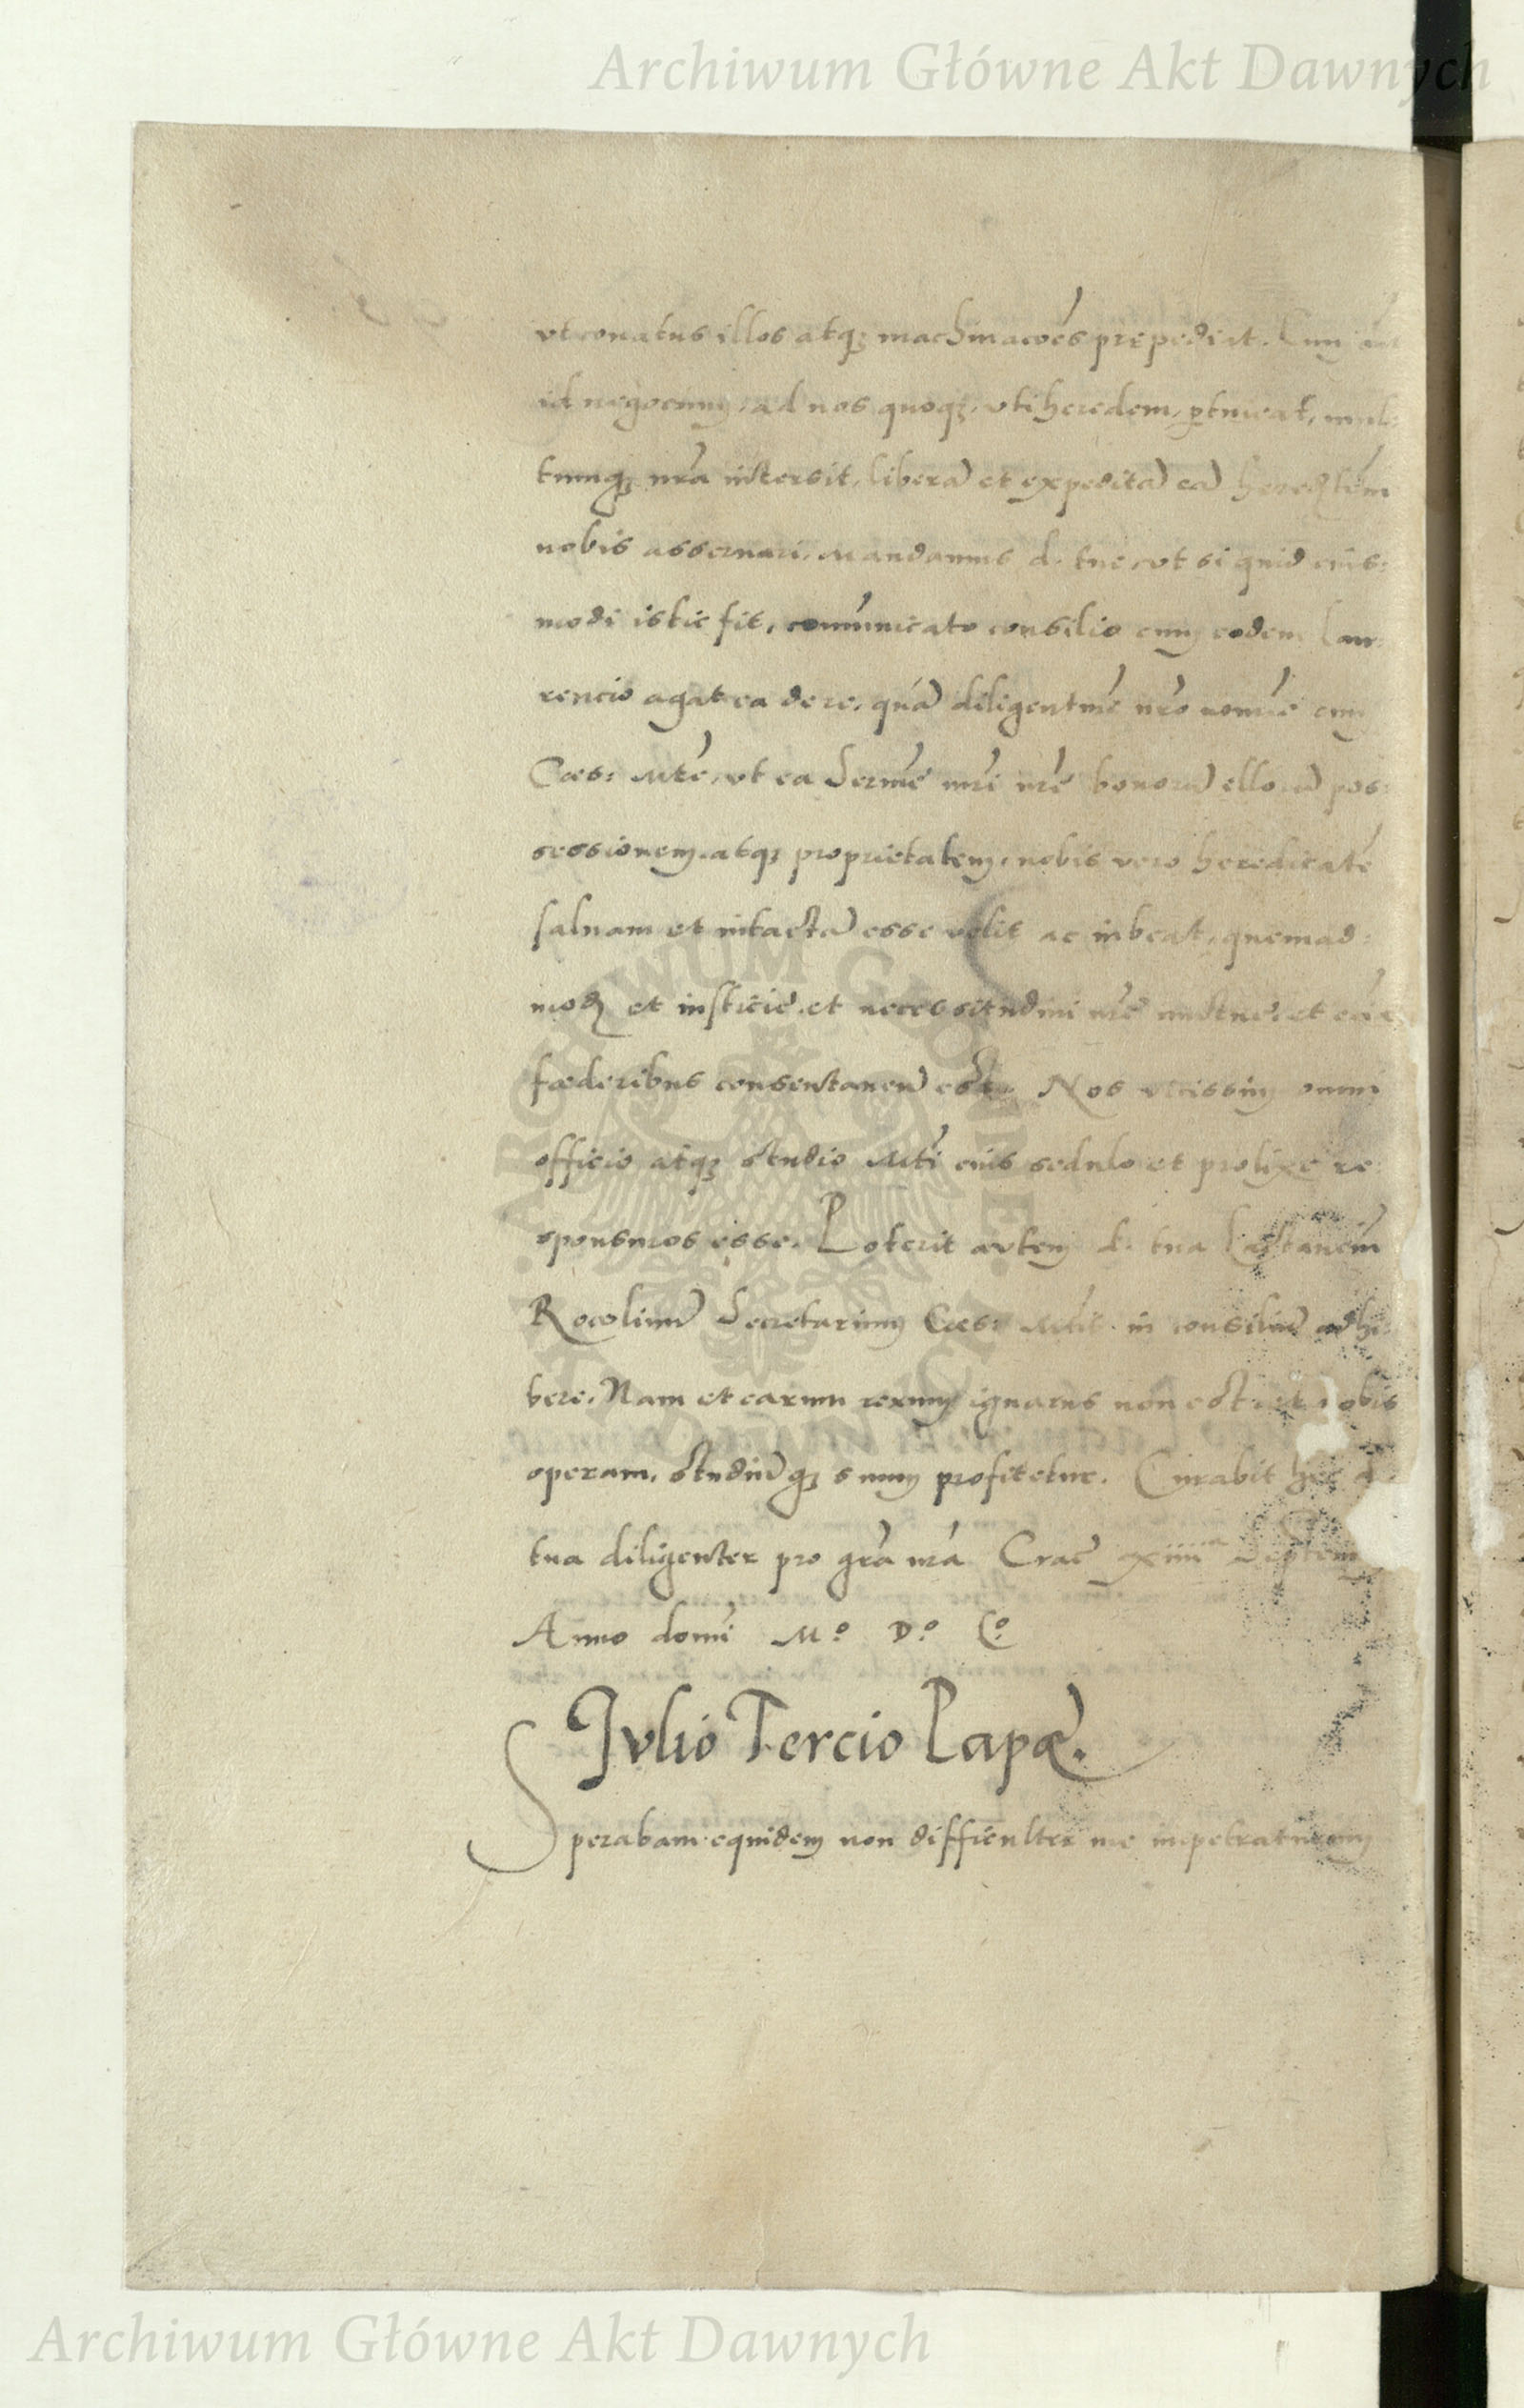 Archiwum Główne Akt Dawnych
vt conatus illos atq; machinacões prepediat. Cum aut
id negocium, ad nos quoq;, vti heredem, ptineat, mul:
tumq; nrã intersit, liberã et expeditã eã heredtẽm
nobis asseruari, Mandamus d. tue, vt si quid eius:
modi istic fit, comũnicato consilio cum eodem Lau:
rencio agat ea de re, quã diligentmẽ nrõ nomĩe cum
Cæs: Mtẽ, vt ea Sermẽ mrĩ nrẽ bonorũ illorũ pos:
sessionem atq; proprietatem, nobis vero hereditatẽ
saluam et intactã esse velit ac iubeat, quemad:
mod et iusticie, et necessitudini nrẽ mutue, et
fœderibus consentaneũ est. Nos vicissim omni
officio atq; studio Mtĩ eius sedulo et prolixe re:
sponsuros esse. Poterit autem d. tua
Secretarium Cæs: Mtis in consiliũ adhi:
bere. Nam et earum rerum ignarus non est, et nobis
operam, studiũq; suum profitetur. Curabit hec d.
tua diligenter pro grã nrã Crac xiiii Septem
Anno domi M.º D.º L.º
Julio Tercio Papæ.
Sperabam equidem non difficulter me impetraturum
ARCHIWUM GŁÓWNE AKT DAWNYCH
Archiwum Główne Akt Dawnych